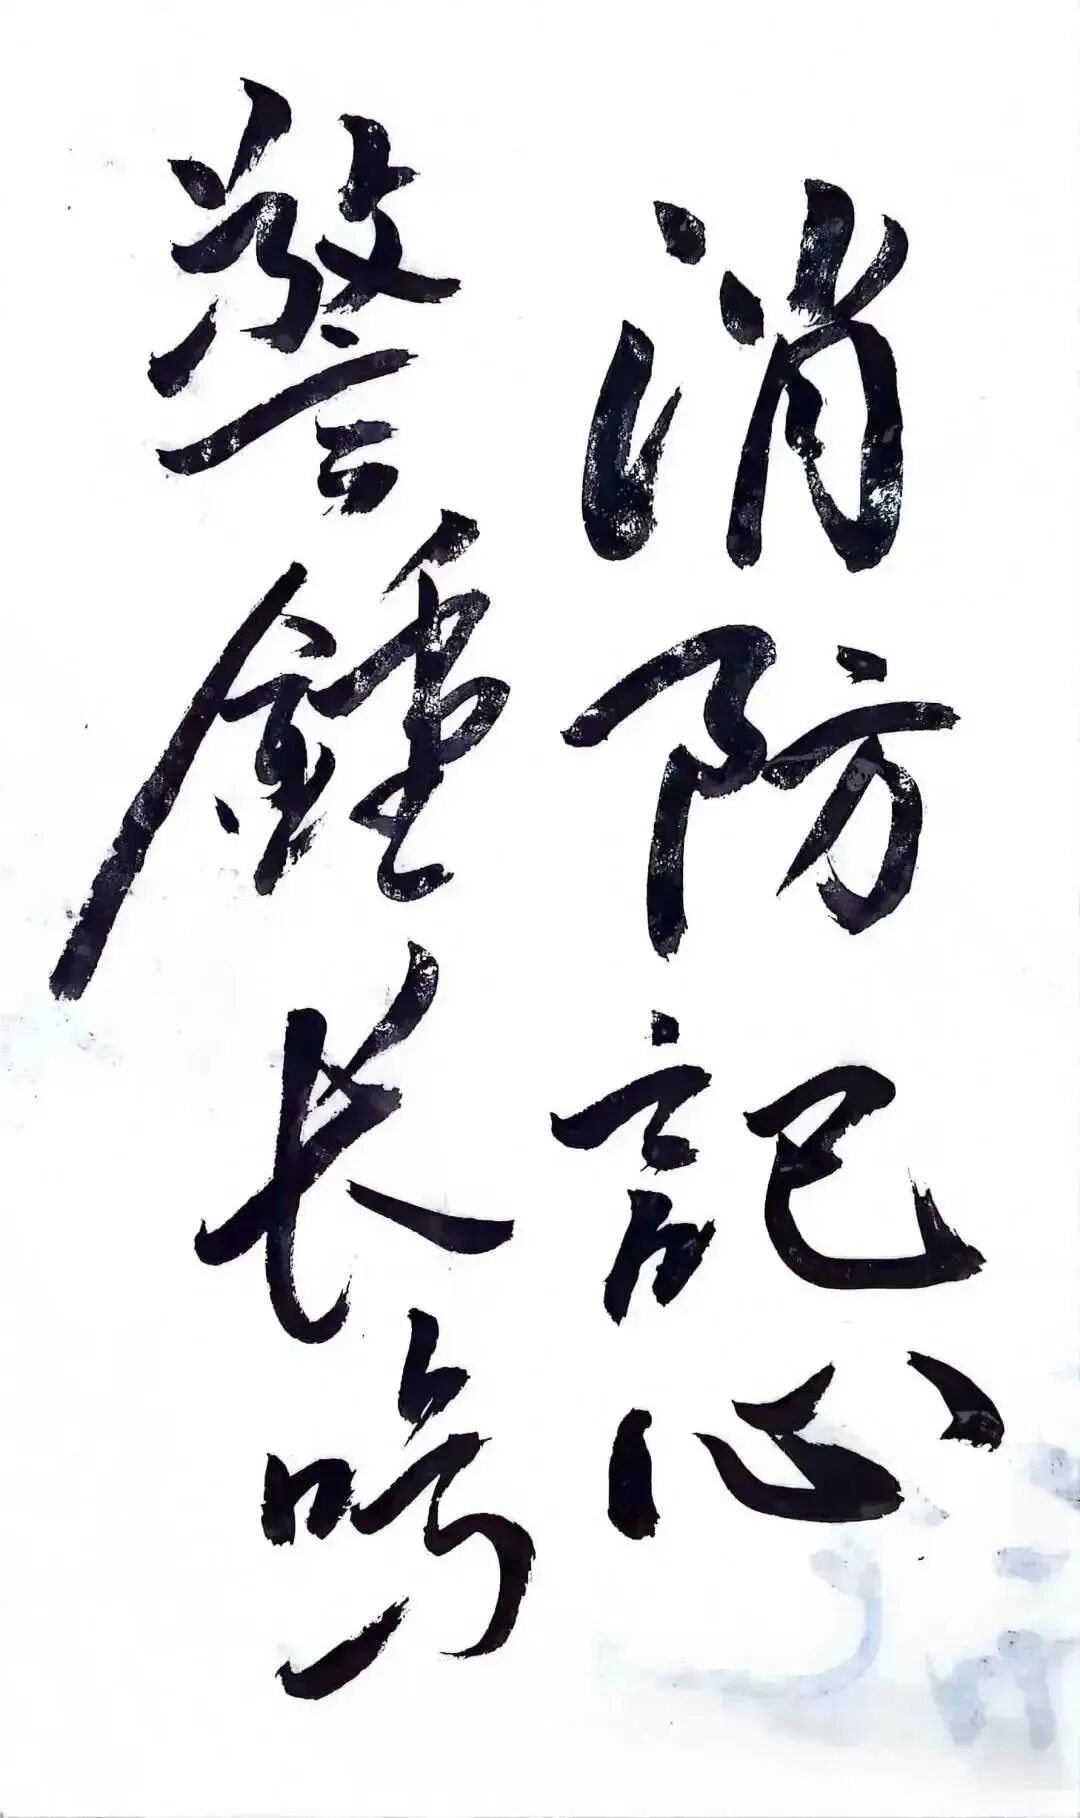 消防記心
警鍾长鸣